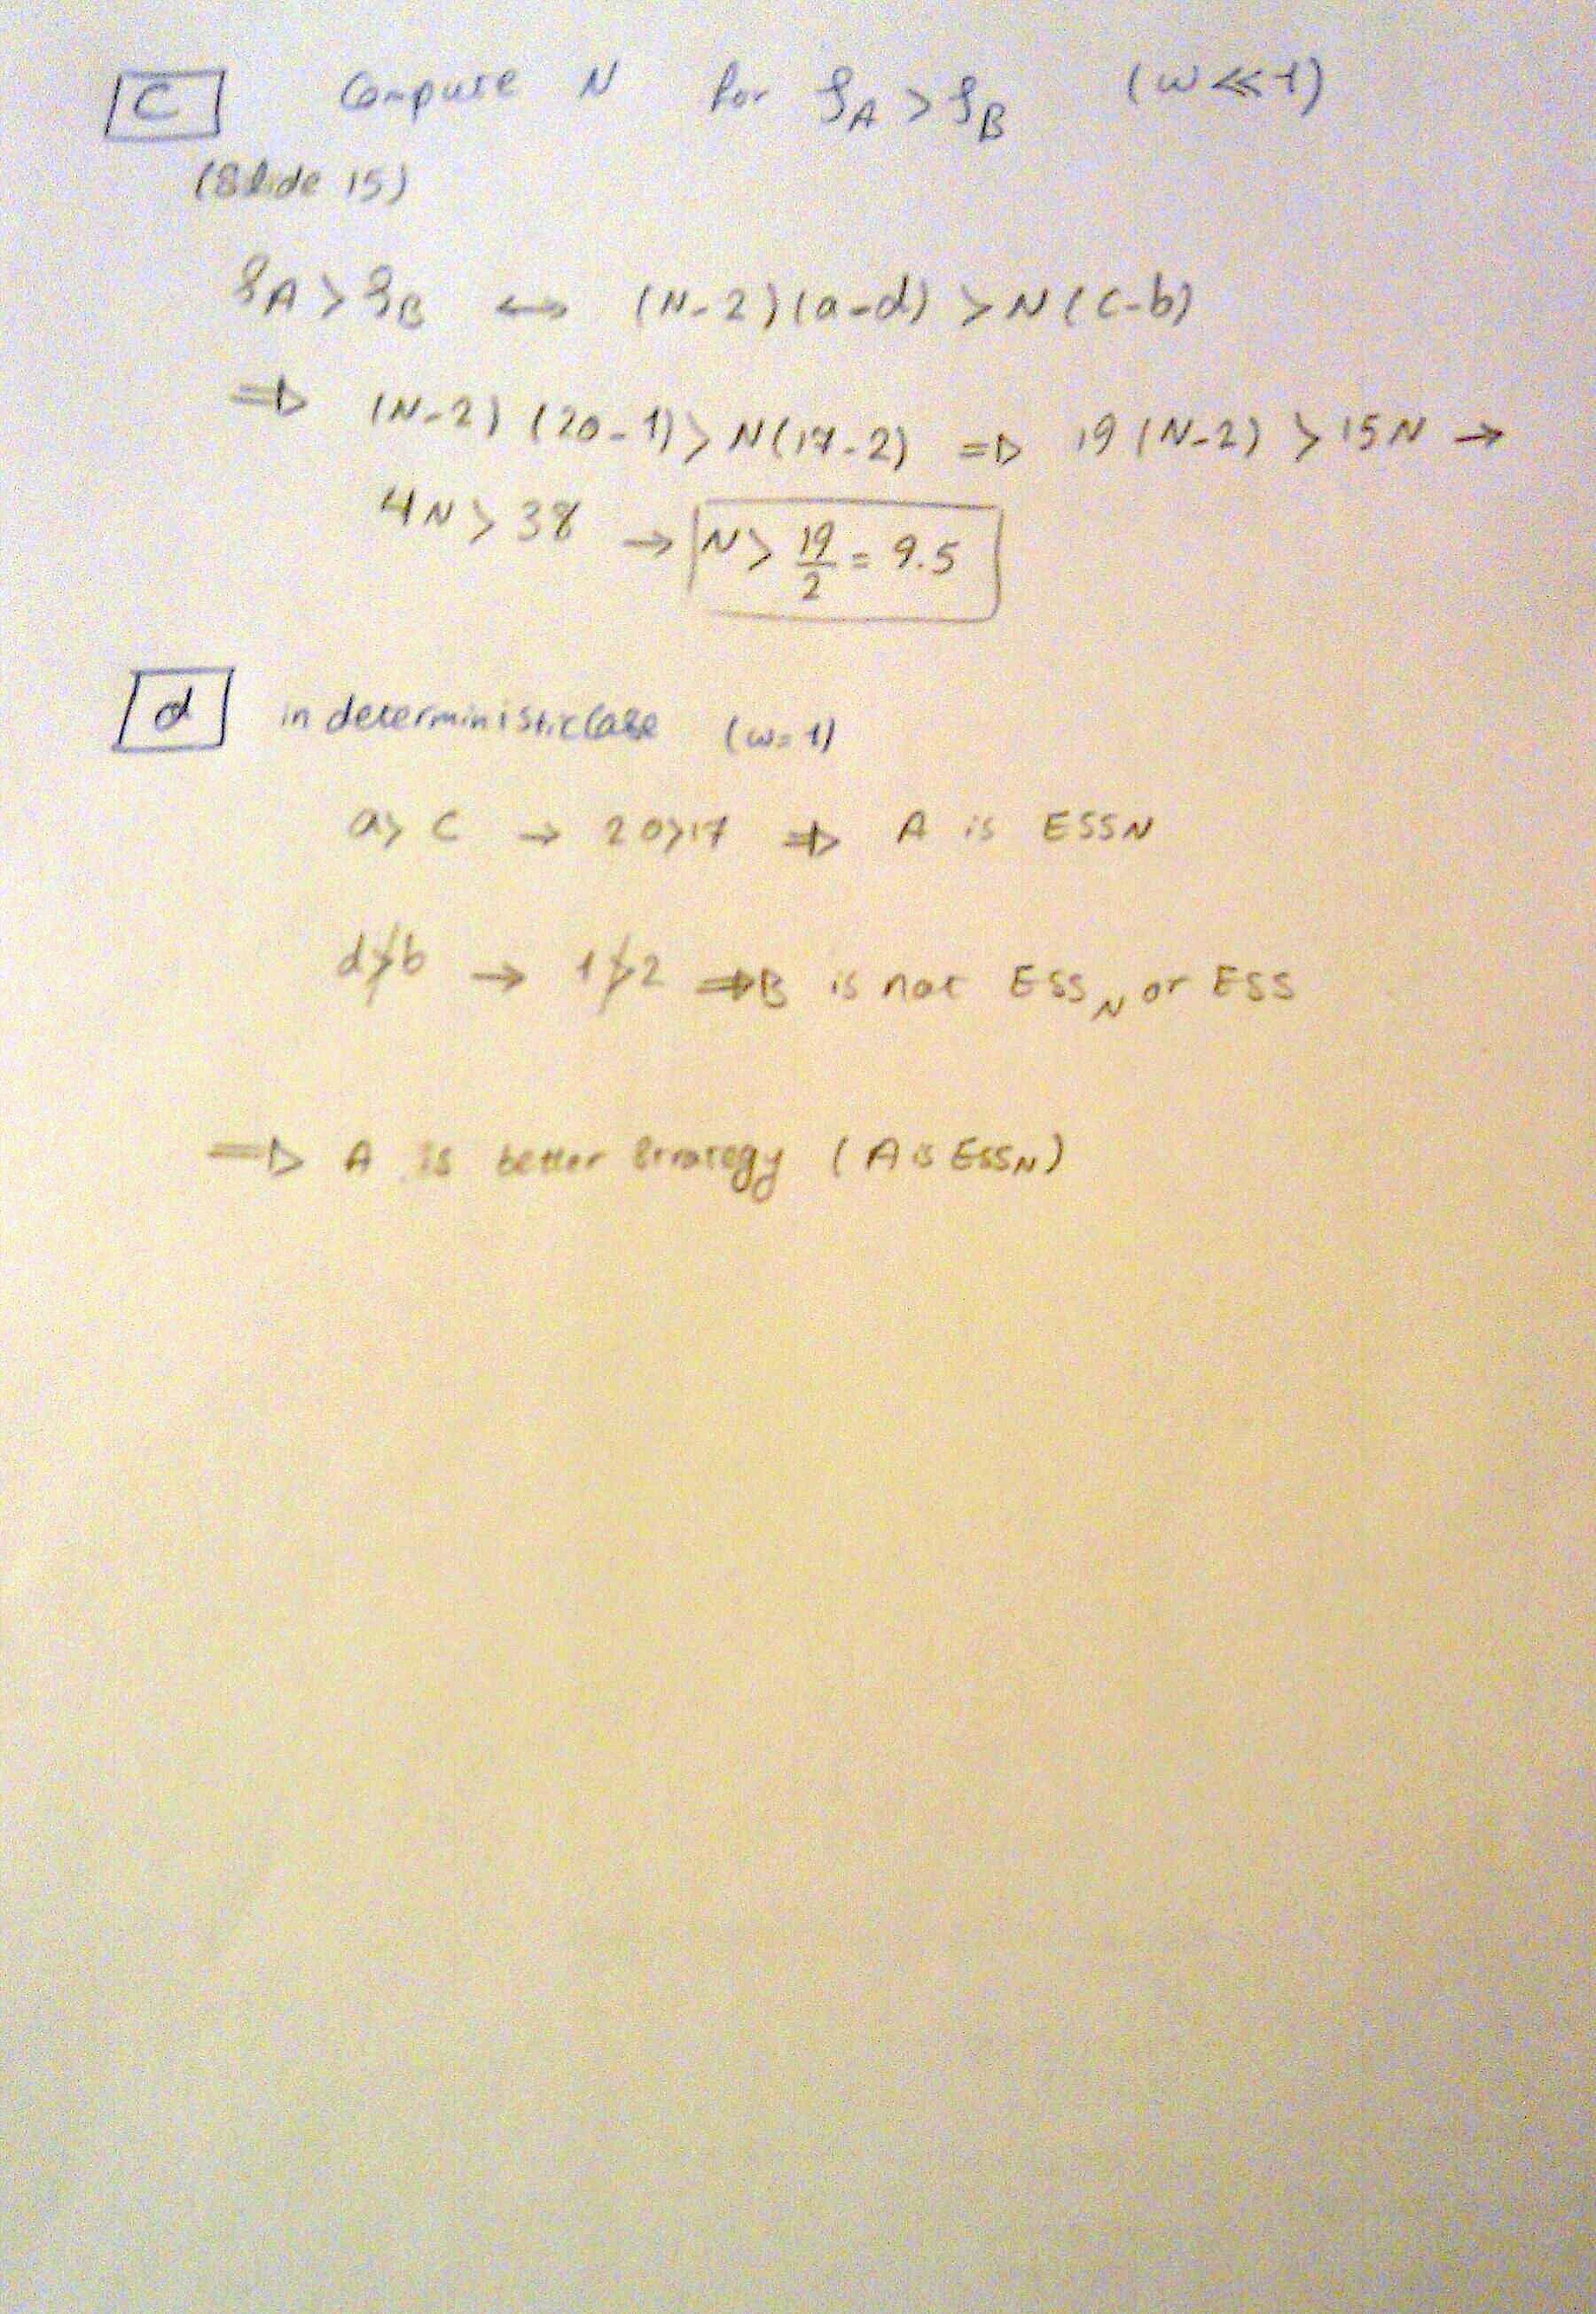 C Compute N for ρA > ρB (w ≪ 1)
(Slide 15)
ρA > ρB ↔ (N-2)(a-d) > N(c-b)
⇒ (N-2)(20-1) > N(17-2) ⇒ 19(N-2) > 15N →
4N > 38 → N > 19/2 = 9.5
d in deterministic Case (w=1)
a > c → 20>17 ⇒ A is ESSN
d≯b → 1≯2 ⇒ B is not ESSN or ESS
⇒ A is better Strategy (A is ESSN)